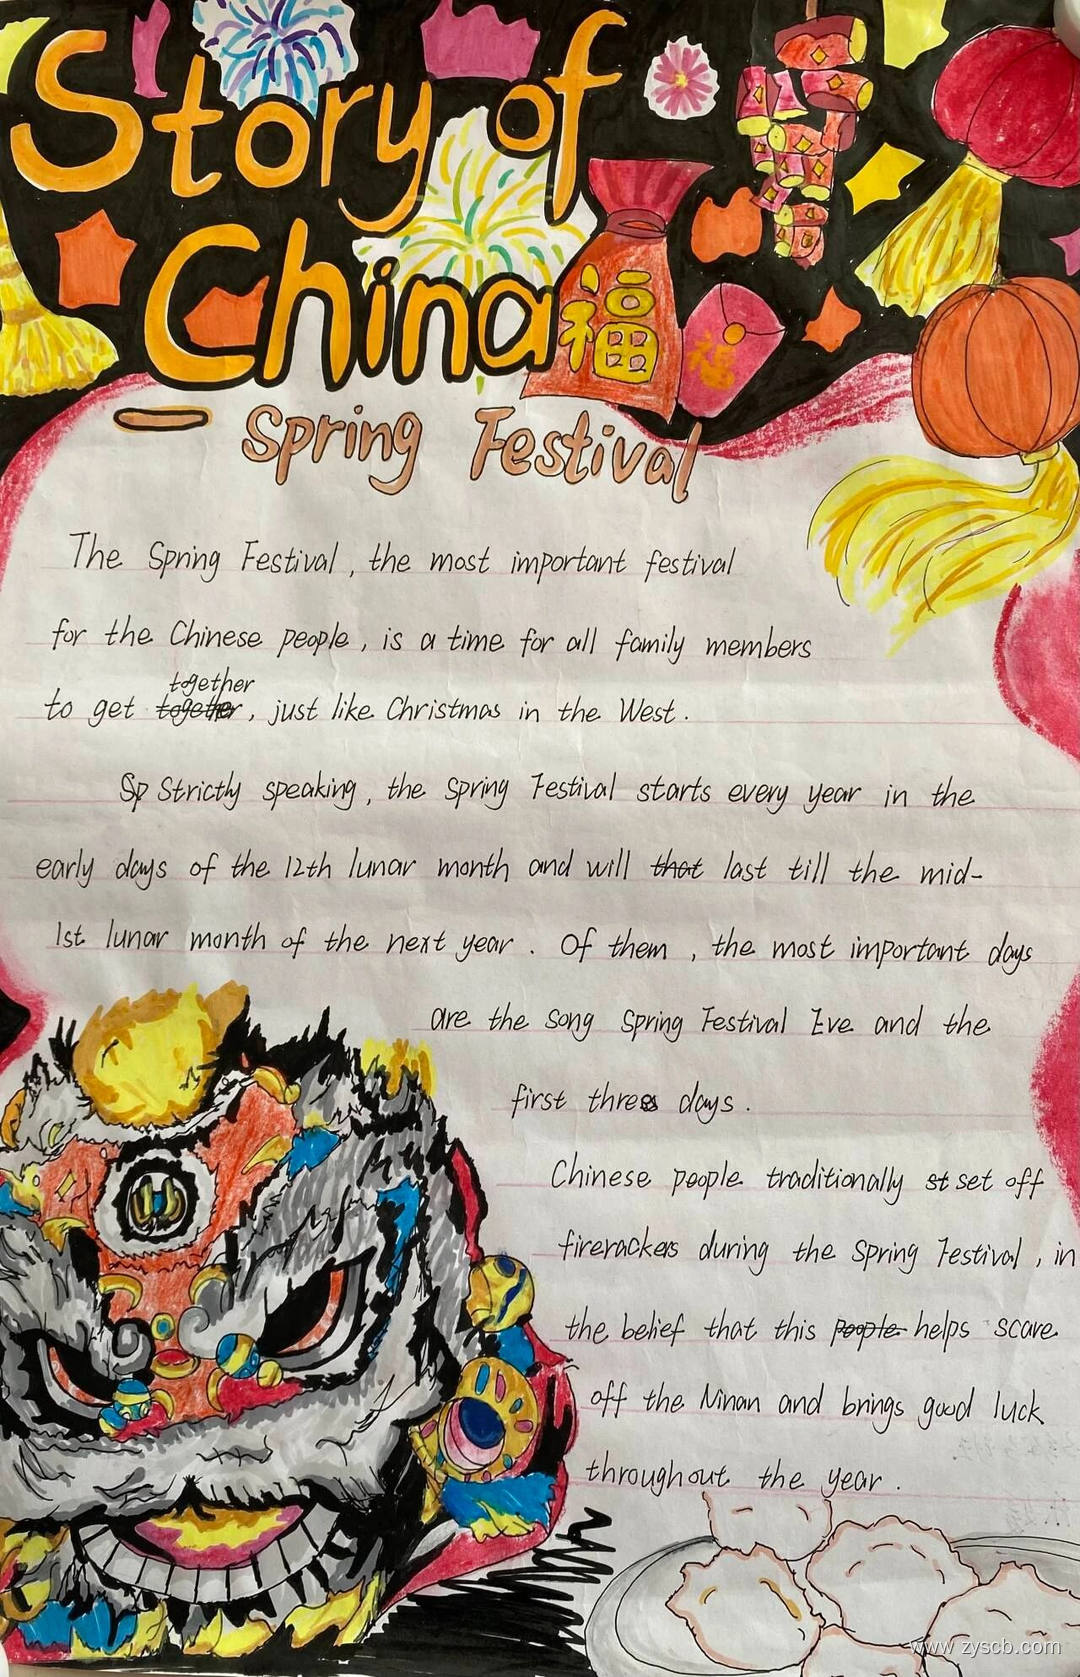 Story of
China
福
福
— Spring Festival
The Spring Festival, the most important festival
for the Chinese people, is a time for all family members
together
to get together, just like Christmas in the West.
Sp Strictly speaking, the Spring Festival starts every year in the
early days of the 12th lunar month and will that last till the mid-
1st lunar month of the next year. Of them, the most important days
are the song Spring Festival Eve and the
first three days.
Chinese people traditionally st set off
firerackers during the Spring Festival, in
the belief that this people helps scare
off the Ninan and brings good luck
throughout the year.
www.zyscb.com